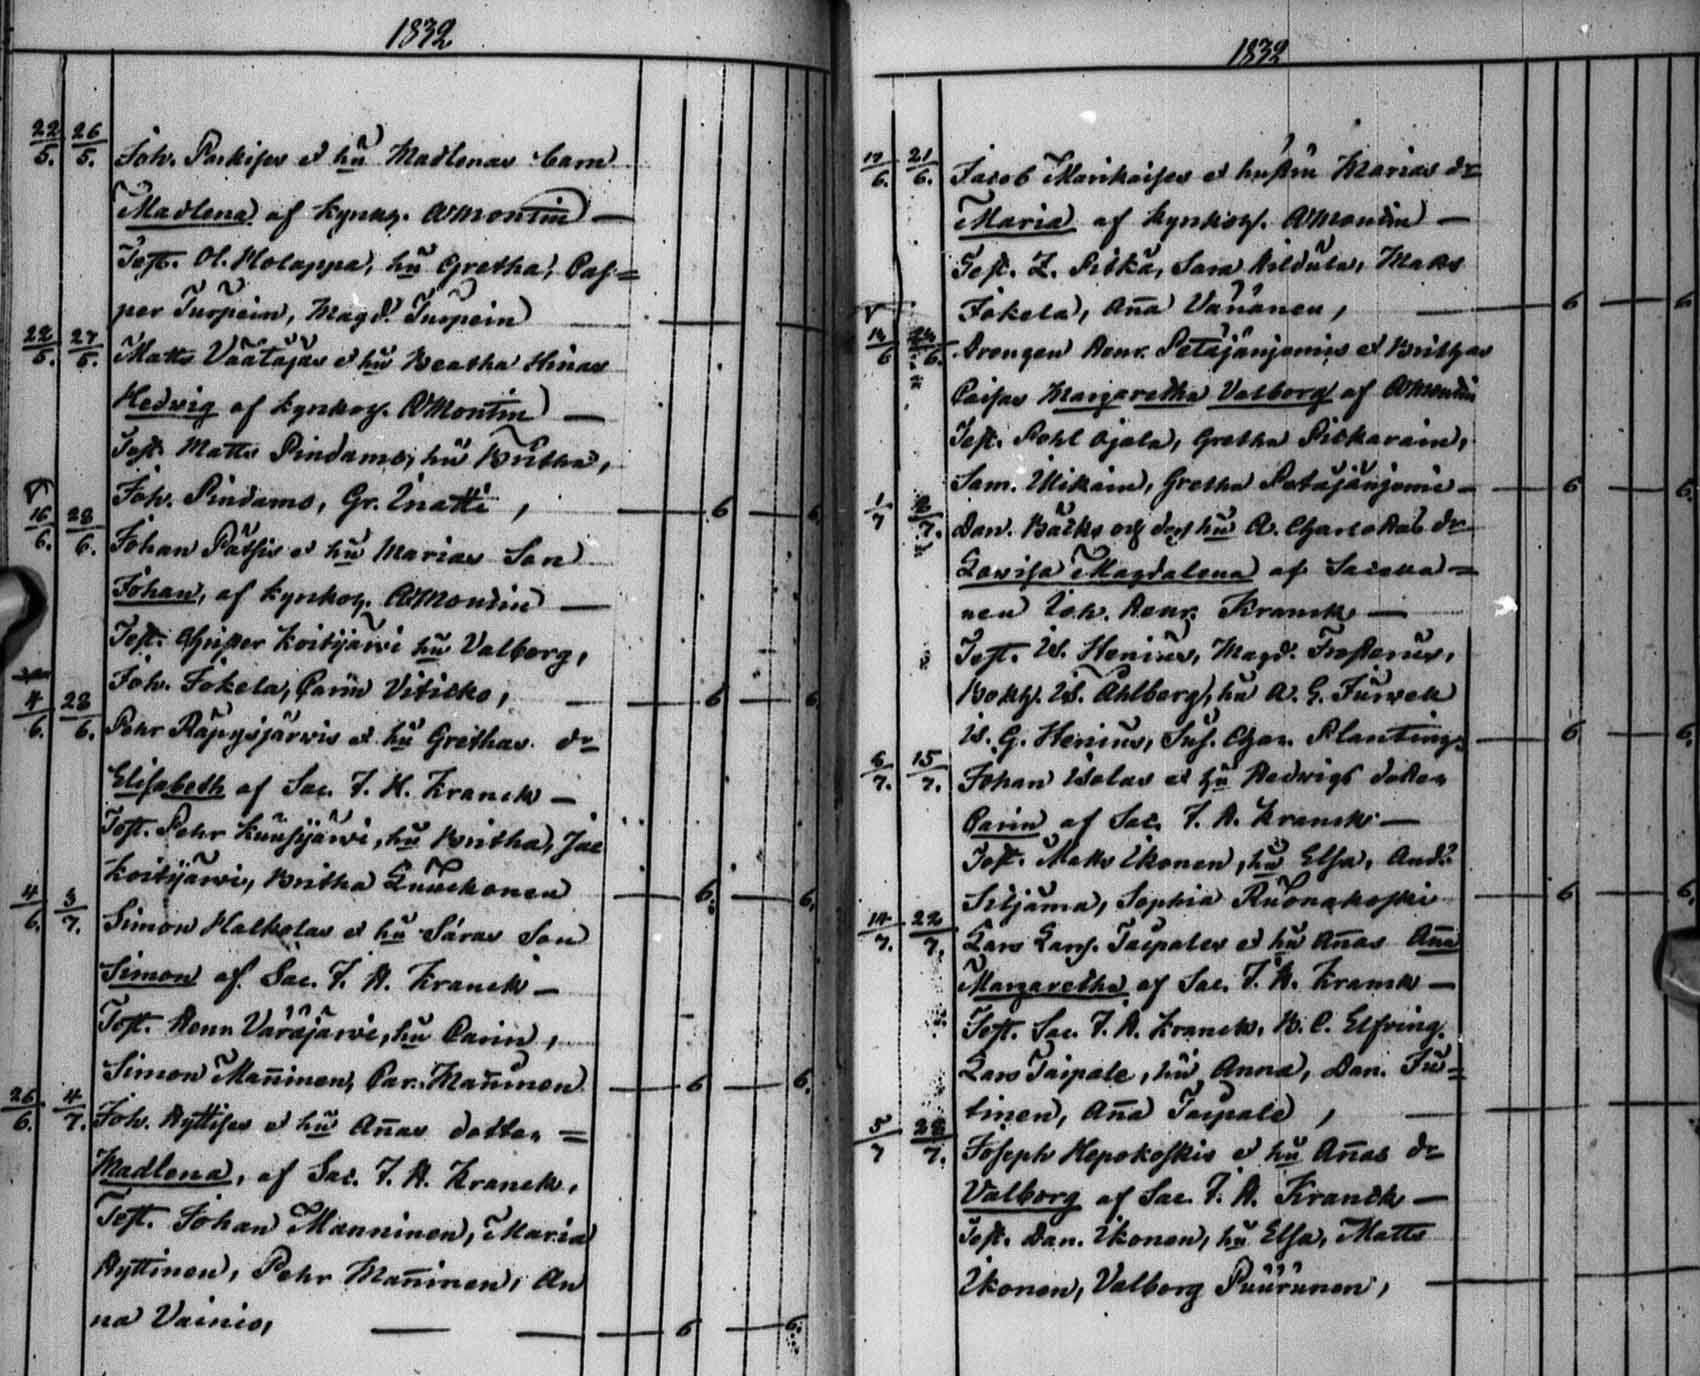 1832
22/5. 26/5. Joh. Parkises et hũ Madlenas barn
Madlena af kyrkoh. A Montin —
Test. Ol. Molappa, hũ Gretha, Cas=
per Turpein, Magd. Turpein
22/5. 27/5. Matts Väätäjäs et hũ Beatha Stinas
Hedwig af kyrkoh. A Montin —
Test. Matts Pindamo, hũ Britha,
Joh. Pindamo, Gr. Inatti, — 6 — 6
16/6. 28/6. Johan Pätsis et hũ Marias Son
Johan, af kyrkoh. A Montin —
Test. Koitijärwi hũ Valborg,
Joh. Jokela, Carin Vitikko, — 6 — 6
4/6. 28/6. Pehr Räpysjärwis et hũ Grethas dr
Elisabeth af Sac. J. H. Kranck —
Test. Pehr Kuusijärwi, hũ Britha, Jac
Koitijärwi, Britha Luukkonen — 6. — 6.
4/6. 3/7. Simon Halkolas et hũ Saras Son
Simon af Sac. J. H. Kranck —
Test. Henr. Väräjärwi, hũ Carin,
Simon Mañinen, Car. Mañinen — 6 — 6.
26/6. 4/7. Joh. Hyttises et hũ Añas dotter =
Madlena, af Sac. J. H. Kranck,
Test. Johan Manninen, Maria
Hyttinen, Pehr Mañinen, An
na Vainio, — 6 — 6.
1832
17/6. 21/6. Jacob Marikaises et hustru Marias dr
Maria af kyrkoh. A Montin —
Test. Z. Pitkä, Sara Aildula, Matts
Jokela, Aña Vänänen, — 6 — 6
14/6 24/6. Drengen Henr. Petäjäniemis et Brithas
Caisas Margaretha Valborg af A Montin
Test. Pehl Ojala, Gretha Pitkarain,
Sam. Mikain, Gretha Petäjäniemi — 6 — 6.
1/7 8/7. Dan. Bäcks och dess hũ A. Charlottas dr
Lovisa Magdalena af Sacella=
nen Joh. Henr. Kranck —
Test. Is. Henius, Magd. Frosterus,
Bokh. Is. Ahlberg, hũ A. G. Turwek
Is. G. Henius, Jus. Char. Planting. — 6 — 6.
6/7. 15/7. Johan Isolas et hũ Hedwigs dotter
Carin af Sac. J. H. Kranck —
Test. Matts Ikonen, hũ Elsa, And.
Siljama, Sophia Ruonakoski — 6 — 6.
14/7. 22/7. Lars Lars. Taipales et hũ Añas Aña
Margaretha af Sac. J. H. Kranck —
Test. Sac. J. H. Kranck, B. C. Elfving.
Lars Taipale, hũ Anna, Dan. Ju=
tinen, Aña Taipale, —
5/7 22/7. Joseph Hepokoskis et hũ Añas dr
Valborg af Sac. J. H. Kranck —
Test. Dan. Ikonen, hũ Elsa, Matts
Ikonen, Valborg Puurunen, —